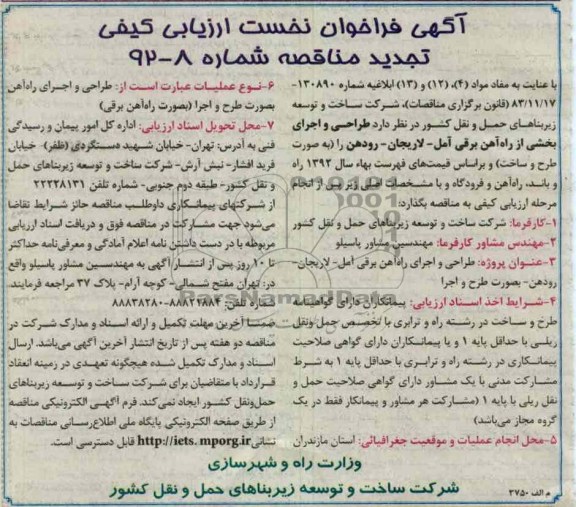 آگهی فراخوان نخست ارزیابی کیفی
تجدید مناقصه شماره ۸-۹۲
با عنایت به مفاد مواد (۴)، (۱۲) و (۱۳) ابلاغیه شماره ۱۳۰۸۹۰-
۸۳/۱۱/۱۷ (قانون برگزاری مناقصات)، شرکت ساخت و توسعه
زیربناهای حمل و نقل کشور در نظر دارد طراحی و اجرای
بخشی از راه‌آهن برقی آمل- لاریجان- رودهن را (به صورت
طرح و ساخت) و براساس قیمت‌های فهرست بهاء سال ۱۳۹۲ راه
و باند، راه‌آهن و فرودگاه و با مشخصات اصلی زیر پس از انجام
مرحله ارزیابی کیفی به مناقصه بگذارد:
۱-کارفرما: شرکت ساخت و توسعه زیربناهای حمل و نقل کشور
۲-مهندس مشاور کارفرما: مهندسین مشاور پاسیلو
۳-عنوان پروژه: طراحی و اجرای راه‌آهن برقی آمل- لاریجان-
رودهن- بصورت طرح و اجرا
۴-شرایط اخذ اسناد ارزیابی: پیمانکاران دارای گواهینامه
طرح و ساخت در رشته راه و ترابری با تخصص حمل ونقل
ریلی با حداقل پایه ۱ و یا پیمانکاران دارای گواهی صلاحیت
پیمانکاری در رشته راه و ترابری با حداقل پایه ۱ به شرط
مشارکت مدنی با یک مشاور دارای گواهی صلاحیت حمل و
نقل ریلی با پایه ۱ (مشارکت هر مشاور و پیمانکار فقط در یک
گروه مجاز می‌باشد)
۵-محل انجام عملیات و موقعیت جغرافیائی: استان مازندران
۶-نوع عملیات عبارت است از: طراحی و اجرای راه‌آهن
بصورت طرح و اجرا (بصورت راه‌آهن برقی)
۷-محل تحویل اسناد ارزیابی: اداره کل امور پیمان و رسیدگی
فنی به آدرس: تهران- خیابان شهید دستگردی (ظفر)- خیابان
فرید افشار- نبش آرش- شرکت ساخت و توسعه زیربناهای حمل
و نقل کشور- طبقه دوم جنوبی- شماره تلفن ۲۲۲۳۸۱۳۱
از شرکتهای پیمانکاری داوطلب مناقصه حائز شرایط تقاضا
می‌شود جهت مشارکت در مناقصه فوق و دریافت اسناد ارزیابی
مربوطه با در دست داشتن نامه اعلام آمادگی و معرفی‌نامه حداکثر
تا ۱۰ روز پس از انتشار آگهی به مهندسین مشاور پاسیلو واقع
در: تهران مفتح شمالی- کوچه آرام- پلاک ۳۷ مراجعه فرمایند.
شماره تلفن: ۸۸۸۴۲۸۸۴-۸۸۸۳۸۲۸۰
ضمنا آخرین مهلت تکمیل و ارائه اسناد و مدارک شرکت در
مناقصه دو هفته پس از تاریخ انتشار آخرین آگهی می‌باشد. ارسال
اسناد و مدارک تکمیل شده هیچگونه تعهدی در زمینه انعقاد
قرارداد با متقاضیان برای شرکت ساخت و توسعه زیربناهای
حمل‌ونقل کشور ایجاد نمی‌کند. فرم آگهی الکترونیکی مناقصه
از طریق صفحه الکترونیکی پایگاه ملی اطلاع‌رسانی مناقصات به
نشانی http://iets.mporg.ir قابل دسترسی است.
وزارت راه و شهرسازی
شرکت ساخت و توسعه زیربناهای حمل و نقل کشور
م الف ۳۷۵۰